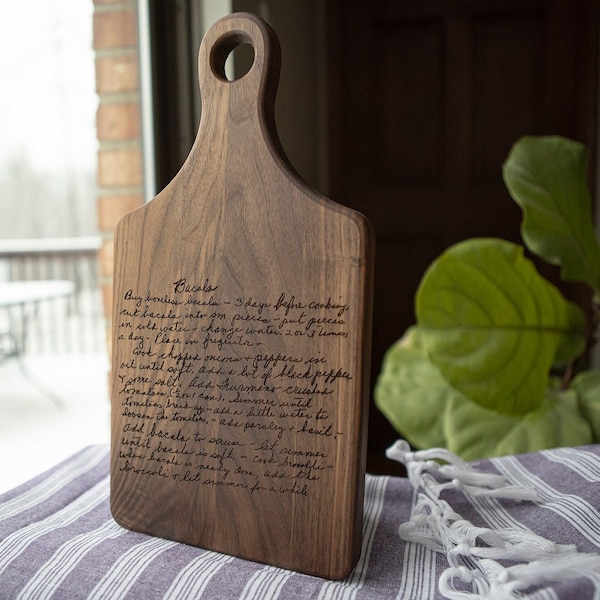 Bacala
Buy boneless bacala - 3 days before cooking,
cut bacala into sm pieces - put pieces
in cold water - change water 2 or 3 times
a day - Place in frigitor -
Cook chopped onions + peppers in
oil until soft, add a lot of black pepper
+ some salt, add Furmens crushed
tomatoes, (28oz/can). Simmer until
tomatoes break up - add a little water to
loosen the tomatoes, - add parsley + basil, -
add bacala to sauce - let simmer
until bacala is soft, - cook broccoli -
when bacala is nearly done, add the
broccoli + let simmer for a while